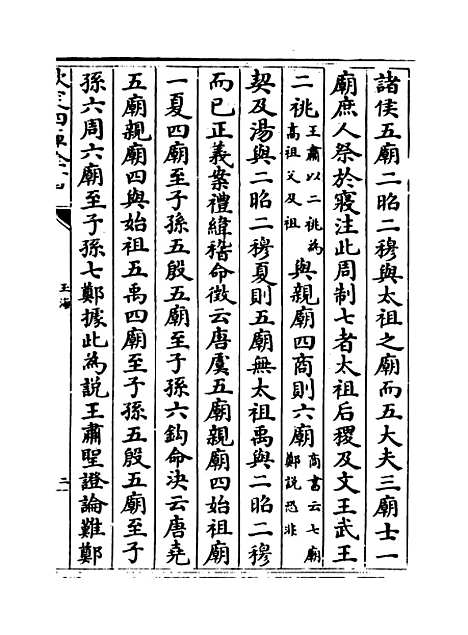 諸侯五廟二昭二穆與太祖之廟而五大夫三廟士一
廟庶人祭於寢注此周制七者太祖后稷及文王武王
二祧王肅以二祧為高祖父及祖與親廟四商則六廟商書云七廟鄭說恐非
契及湯與二昭二穆夏則五廟無太祖禹與二昭二穆
而已正義案禮緯稽命徴云唐虞五廟親廟四始祖廟
一夏四廟至子孫五殷五廟至子孫六鈎命決云唐堯
五廟親廟四與始祖五禹四廟至子孫五殷五廟至子
孫六周六廟至子孫七鄭據此為説王肅聖證論難鄭
玉海